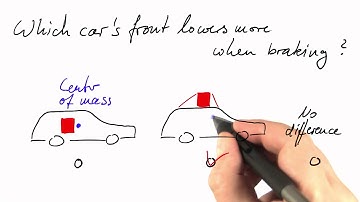 Which car's front lowers more
when braking?
Centr
of mass
No
difference